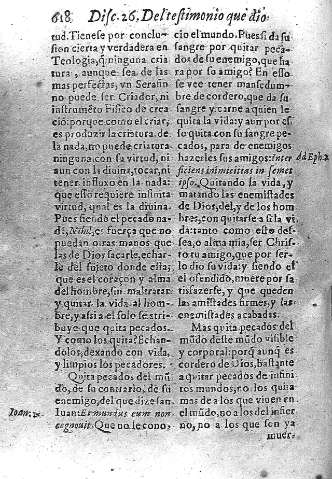 618 Disc. 26. Del testimonio que dio
tud. Tienese por conclu-
sion cierta y verdadera en
Teologia, q̃ ninguna criatu
ra, aunque sea de las
mas perfectas, vn Serafin
no puede ser Criador, ni
instrumẽto Fisico de crea
ció: porque como el criar,
es produzir la criatura de
la nada, no puede criatura
ninguna con su virtud, ni
aun con la diuina, tocar, ni
tener influxo en la nada:
que esso requiere infinita
virtud, qual es la diuina.
Pues siẽdo el pecado na-
da, Nihil, es fuerça que no
puedan otras manos que
las de Dios sacarle, echar-
le del sujeto donde està,
que es el coraçon y alma
del hombre, sin maltratar
y quitar la vida al hom-
bre, y assi a el solo se atri-
buye que quita pecados.
Y como los quita? Echan-
dolos, dexando con vida,
y limpios los pecadores.
Quita pecados del mũ
do, de su contrario, de su
enemigo, del que dize san
Iuan: Et mundus eum non
cognouit. Que no le cono-
Ioan. 1.
cio el mundo. Pues si da su
sangre por quitar peca-
dos de su enemigo, que ha
ra por su amigo? En esso
se vee tener mansedum-
bre de cordero, que da su
sangre y carne a quien le
quita la vida: y aun por es
so quita con su sangre pe-
cados, para de enemigos
hazerles sus amigos: Inter
ficiens inimicitias in semet
ipso. Quitando la vida, y
matando las enemistades
de Dios, del, y de los hom-
bres, con quitarse a si la vi
da: tanto como esto des-
sea, o alma mia, ser Chris-
to tu amigo, que por ser-
lo dio su vida: y siendo el
el ofendido, muere por sa
tisfazerse, y que queden
las amistades firmes, y las
enemistades acabadas.
Mas quita pecados del
mũdo deste mũdo visible
y corporal: porq̃ aunq̃ es
cordero de Dios, bastante
a quitar pecados de infini
tos mundos, no los quita
mas de a los que viuen en
el mũdo, no a los del infier
no, no a los que son ya
muer-
Ad Eph. 2.